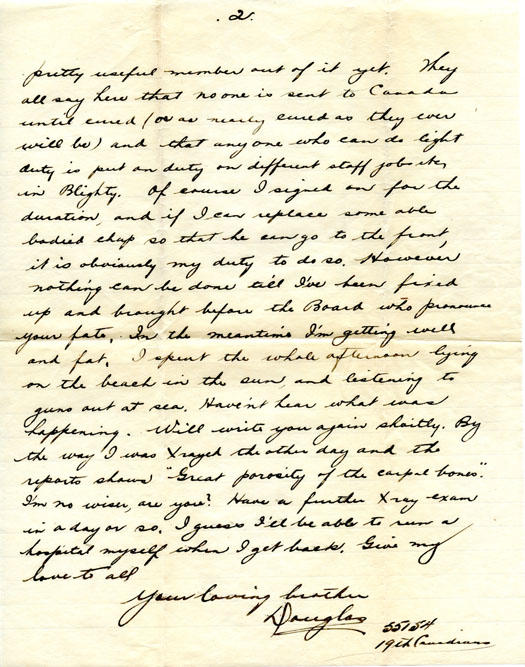 . 2.
pretty useful member out of it yet. They
all say here that no one is sent to Canada
until cured (or as nearly cured as they ever
will be) and that any one who can do light
duty is put on duty on different staff jobs etc,
in Blighty. Of course I signed on for the
duration, and if I can replace some able
bodied chap so that he can go to the front,
it is obviously my duty to do so. However
nothing can be done till I've been fixed
up and brought before the Board who pronounce
your fate. In the meantime I'm getting well
and fat. I spent the whole afternoon lying
on the beach in the sun, and listening to
guns out at sea. Haven't hear what was
happening. Will write you again shortly. By
the way I was Xrayed the other day and the
reports shows "Great porosity of the carpal bones".
I'm no wiser, are you? Have a further Xray exam
in a day or so. I guess I'll be able to run a
hospital myself when I get back. Give my
love to all
Your loving brother
Douglas
55154
19th Canadians